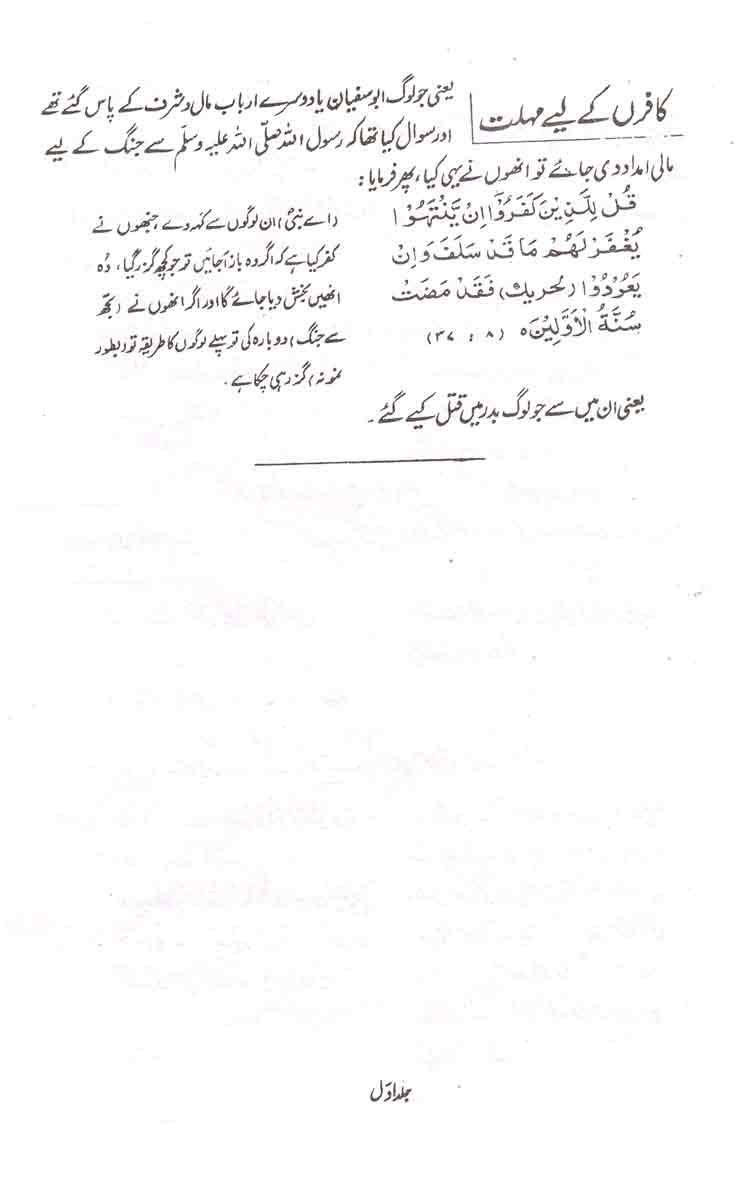 کافروں کے لیے مہلت
یعنی جو لوگ ابوسفیان یا دوسرے ارباب مال و شرف کے پاس گئے تھے
اور سوال کیا تھا کہ رسول اللہ صلی اللہ علیہ وسلم سے جنگ کے لیے
مالی امداد دی جائے تو انھوں نے یہی کیا، پھر فرمایا:
قُلْ لِلَّذِیْنَ کَفَرُوْٓا اِنْ یَّنْتَہُوْا
یُغْفَرْ لَہُمْ مَا قَدْ سَلَفَ وَاِنْ
یَعُوْدُوْا (لحربك) فَقَدْ مَضَتْ
سُنَّۃُ الْاَوَّلِیْنَ ہ (۸ : ۳۷)
(اے نبی!) ان لوگوں سے کہہ دے، جنھوں نے
کفر کیا ہے کہ اگر وہ باز آجائیں تو جو کچھ گزر گیا، وہ
انھیں بخش دیا جائے گا اور اگر انھوں نے (تجھ
سے جنگ) دوبارہ کی تو پہلے لوگوں کا طریقہ تو (بطور
نمونہ) گزر ہی چکا ہے۔
یعنی ان میں سے جو لوگ بدر میں قتل کیے گئے۔
جلد اوّل